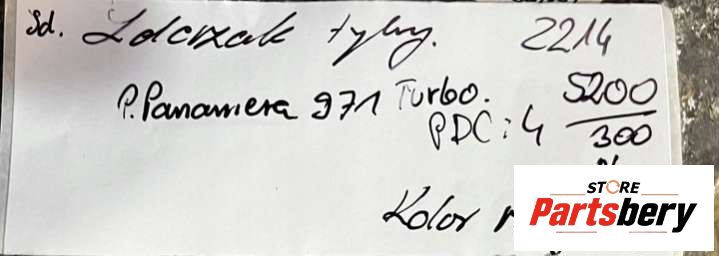 Sd. Zderzak tylny. 2214
P. Panamera 971 Turbo. 5200
PDC: 4 300
Kolor
STORE
Partsbery